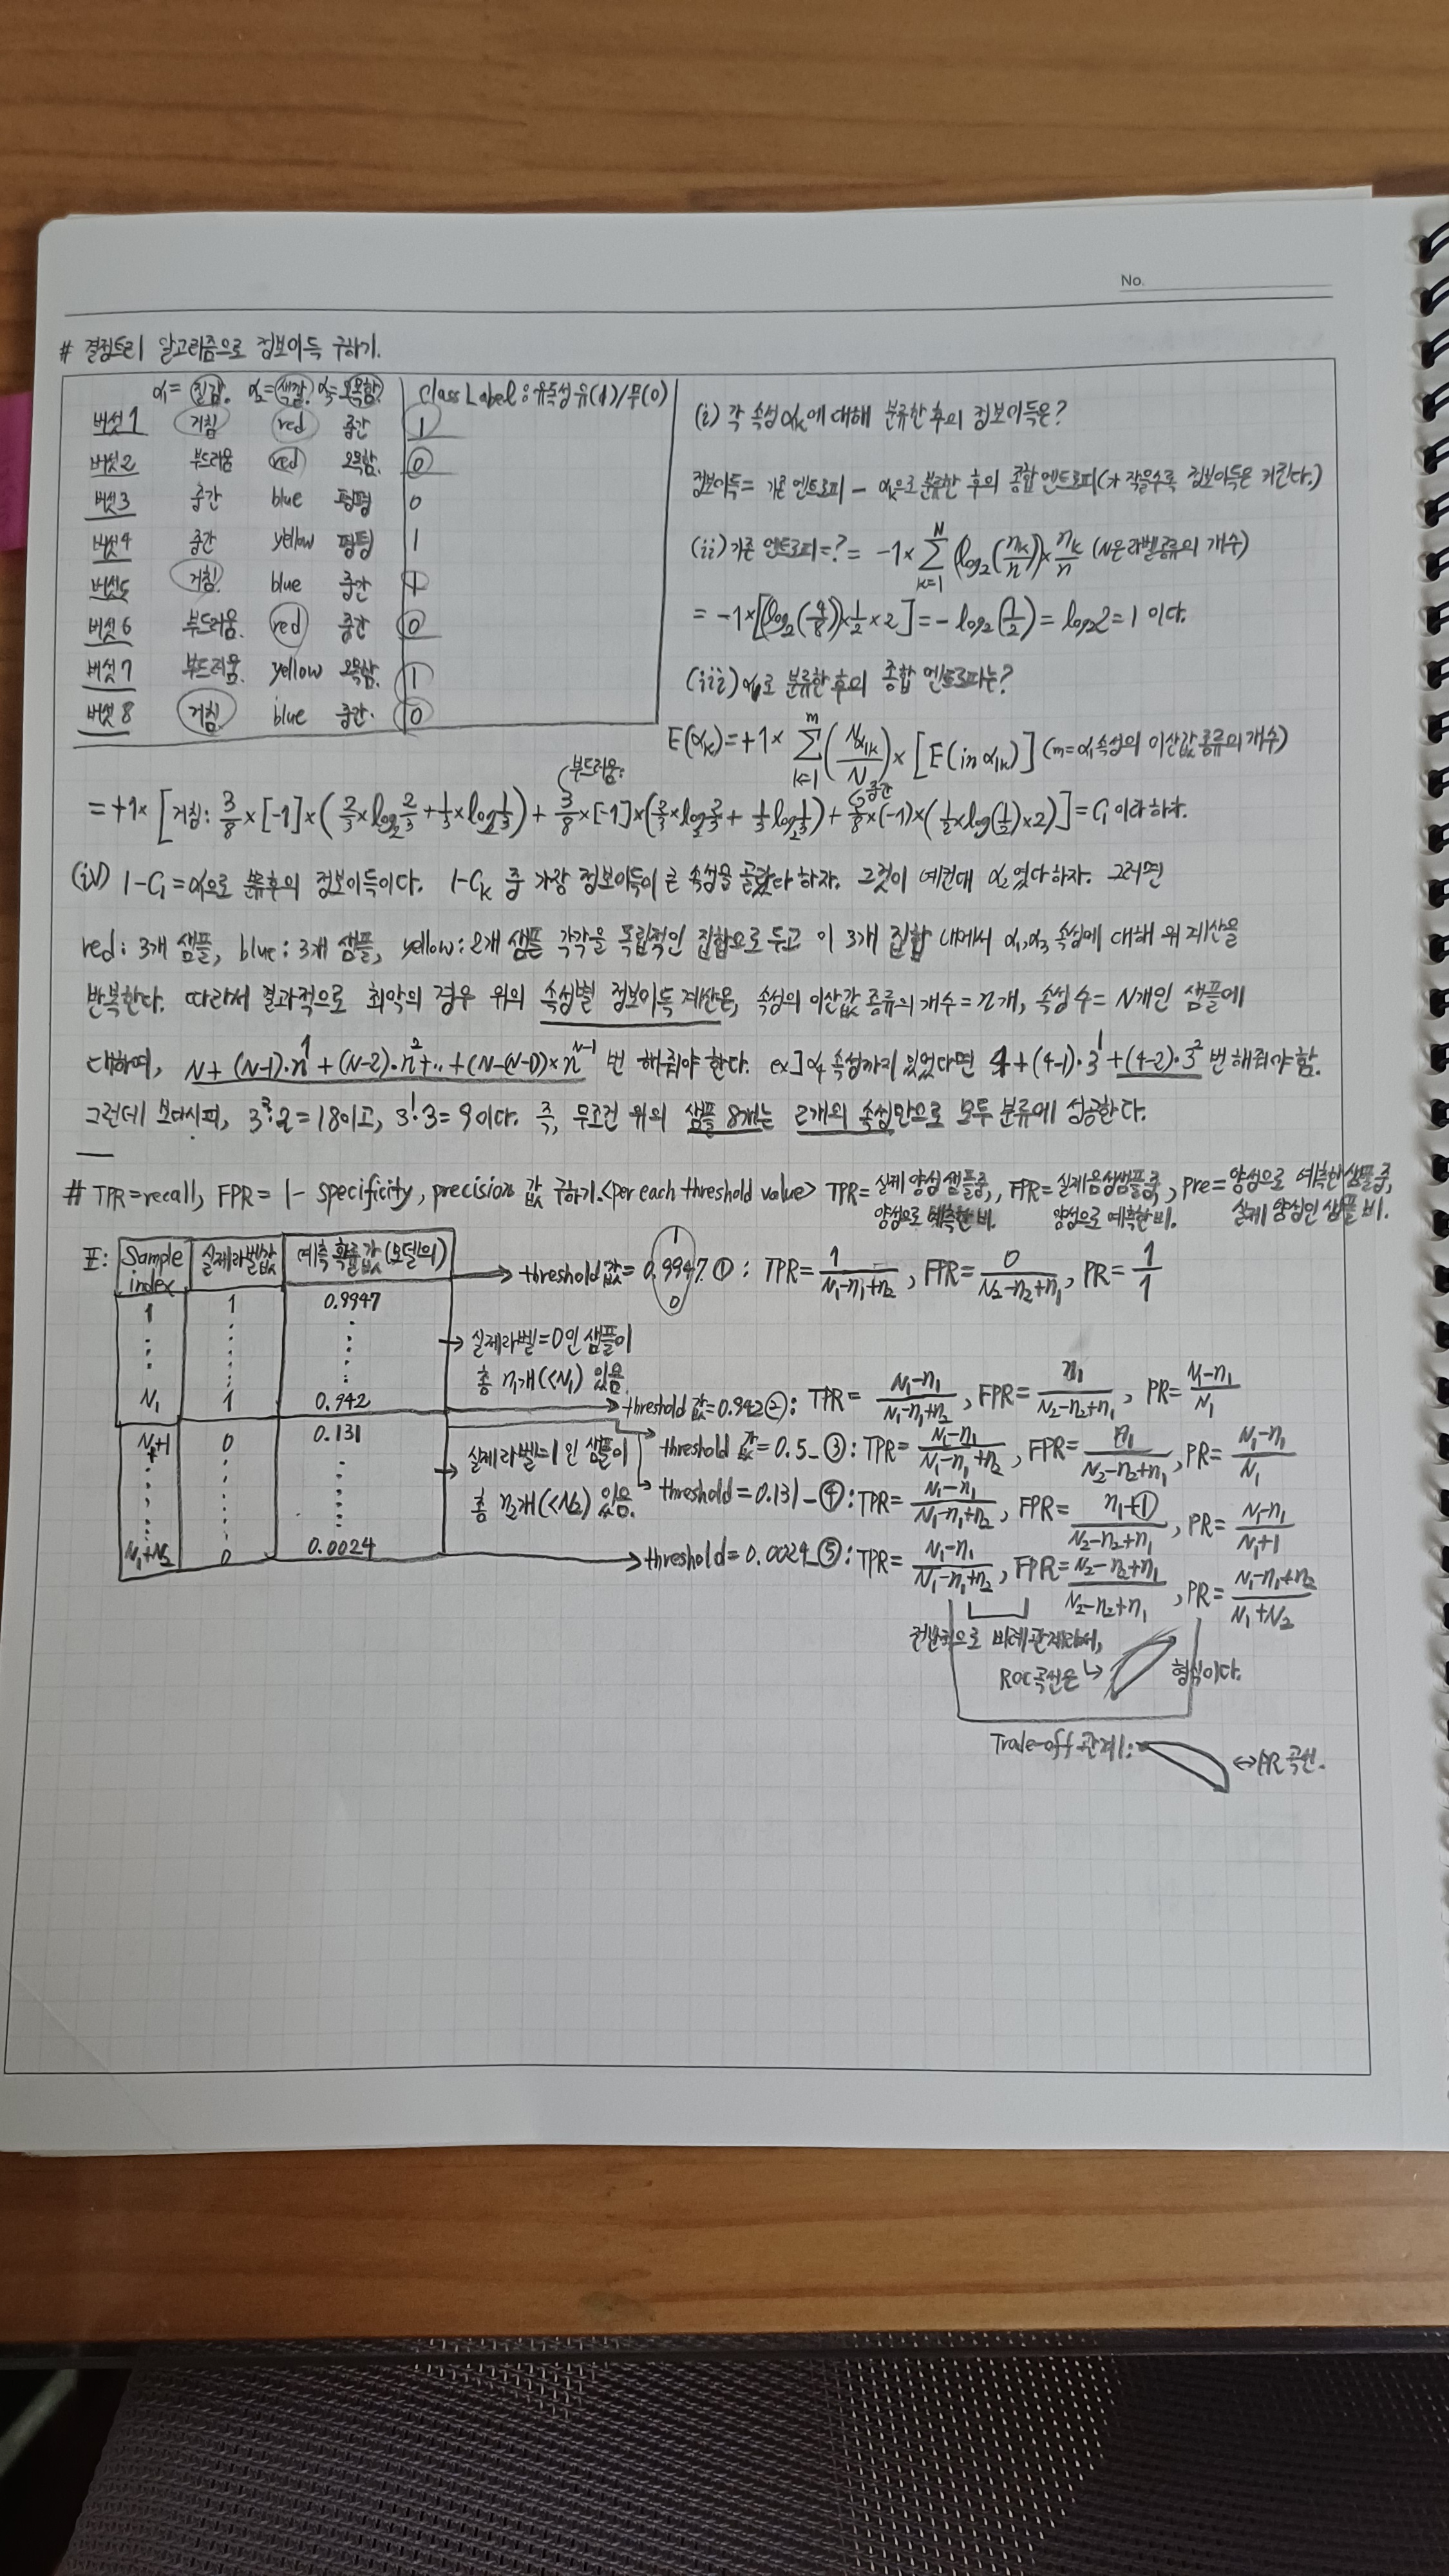 No.
# 결정트리 알고리즘으로 정보이득 구하기.
α₁=질감. α₂=색깔. α₃=오목함? Class Label : 유독성 유(1)/무(0)
버섯1 거침 red 중간 1
버섯2 부드러움 red 오목함. 0
버섯3 중간 blue 평평 0
버섯4 중간 yellow 평평 1
버섯5 거침. blue 중간 1
버섯6 부드러움. red 중간 0
버섯7 부드러움. yellow 오목함. 1
버섯8 거침. blue 중간. 0
(i) 각 속성 αₖ에 대해 분류한 후의 정보이득은?
정보이득= 기존 엔트로피 - αₖ으로 분류한 후의 종합 엔트로피(가 작을수록 정보이득은 커진다.)
(ii) 기존 엔트로피=? = -1× Σ_{k=1}^{N} (log₂(nₖ/n))× nₖ/n (N은 라벨종류의 개수)
= -1×[(log₂(4/8))×1/2×2] = -log₂(1/2) = log₂2 = 1 이다.
(iii) α₁로 분류한 후의 종합 엔트로피는?
E(αₖ)=+1× Σ_{k=1}^{m} (Nα₁ₖ/N) × [E(in α₁ₖ)] (m=α₁속성의 이산값 종류의 개수)
부드러움: 중간
= +1× [거침: 3/8×[-1]×(2/3×log₂2/3+1/3×log₂1/3) + 3/8×[-1]×(2/3×log₂2/3+1/3log₂1/3) + 2/8×(-1)×(1/2×log(1/2)×2)] = C₁ 이라 하자.
(iv) 1-C₁=α₁으로 분류후의 정보이득이다. 1-Cₖ 중 가장 정보이득이 큰 속성을 골랐다 하자. 그것이 예컨대 α₂였다 하자. 그러면
red: 3개 샘플, blue: 3개 샘플, yellow: 2개 샘플 각각을 독립적인 집합으로 두고 이 3개 집합 내에서 α₁,α₃ 속성에 대해 위 계산을
반복한다. 따라서 결과적으로 최악의 경우 위의 속성별 정보이득 계산은, 속성의 이산값 종류의 개수=n개, 속성 수=N개인 샘플에
대하여, N+(N-1)·n¹+(N-2)·n²+..+(N-(N-1))×n^{N-1} 번 해줘야 한다. ex] α₄ 속성까지 있었다면 4+(4-1)·3¹+(4-2)·3² 번 해줘야 함.
그런데 보다시피, 3²·2=18이고, 3¹·3=9이다. 즉, 무조건 위의 샘플 8개는 2개의 속성만으로 모두 분류에 성공한다.
# TPR=recall, FPR= 1- specificity, precision 값 구하기.<per each threshold value> TPR=실제 양성 샘플중, 양성으로 예측한 비., FPR=실제음성샘플중, 양성으로 예측한 비., pre=양성으로 예측한 샘플 중, 실제 양성인 샘플 비.
표: Sample index 실제라벨값 예측 확률값(모델의)
1 1 0.9947
N₁ 1 0.942
N₁+1 0 0.131
N₁+N₂ 0 0.0024
→ threshold값=0.9947. ①: TPR=1/(N₁-n₁+n₂), FPR=0/(N₂-n₂+n₁), PR=1/1
→ 실제라벨=0인 샘플이
총 n₁개(<N₁) 있음.
→ threshold값=0.942②: TPR=(N₁-n₁)/(N₁-n₁+n₂), FPR=n₁/(N₂-n₂+n₁), PR=(N₁-n₁)/N₁
→ threshold 값=0.5_③: TPR=(N₁-n₁)/(N₁-n₁+n₂), FPR=n₁/(N₂-n₂+n₁), PR=(N₁-n₁)/N₁
→ 실제라벨=1인 샘플이
총 n₂개(<N₂) 있음.
→ threshold=0.131_④: TPR=(N₁-n₁)/(N₁-n₁+n₂), FPR=(n₁+①)/(N₂-n₂+n₁), PR=(N₁-n₁)/(N₁+1)
→ threshold=0.0024_⑤: TPR=(N₁-n₁)/(N₁-n₁+n₂), FPR=(N₂-n₂+n₁)/(N₂-n₂+n₁), PR=(N₁-n₁+n₂)/(N₁+N₂)
전반적으로 비례관계라서,
ROC곡선은 형식이다.
Trade-off 관계: ↔PR 곡선.